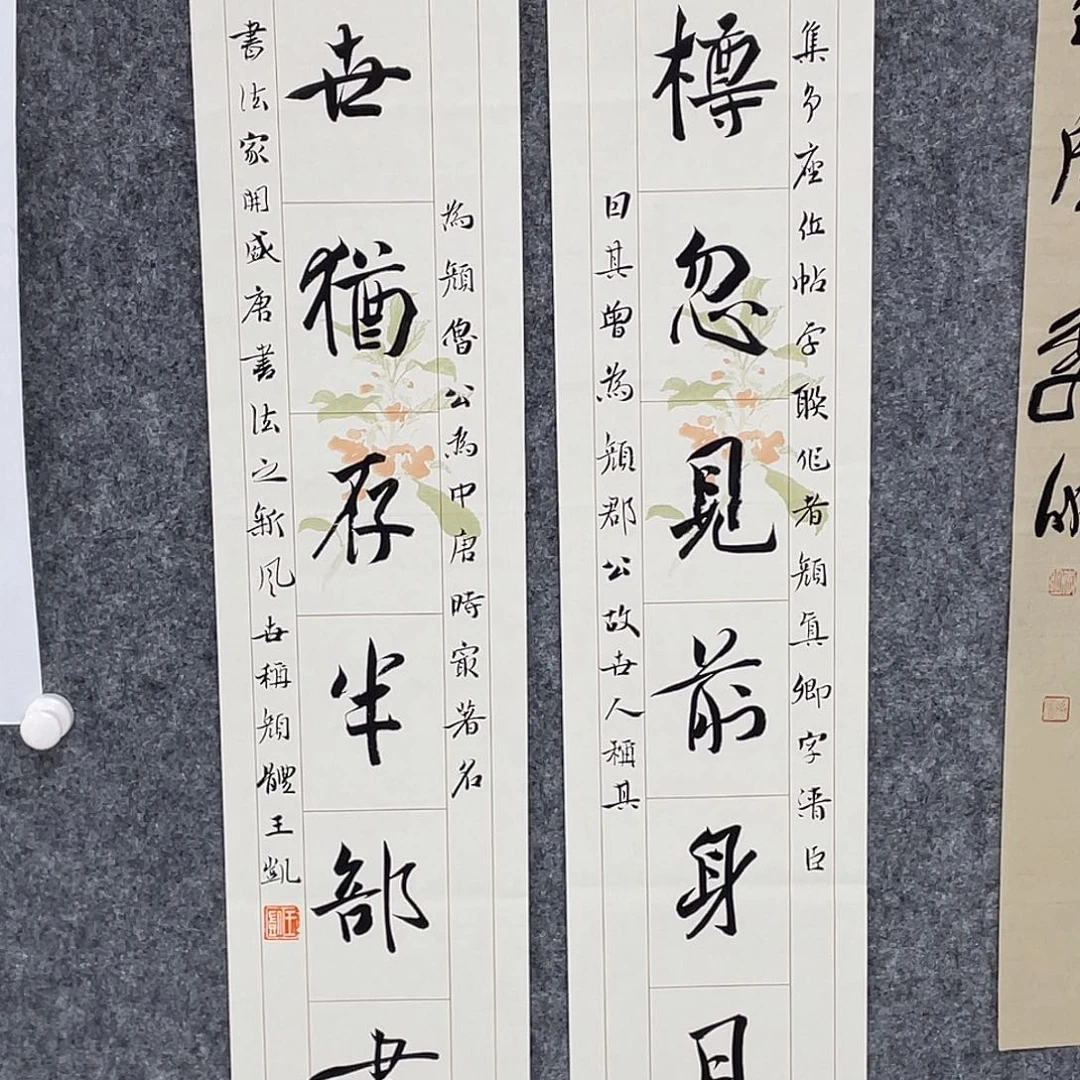 集爭座位帖字聯作者顏真卿字清臣
樽忽見前身
曰其曾為顏郡公故世人稱其
為顏魯公為中唐時最著名
世猶存半部
書法家開盛唐書法之新風世稱顏體王凱